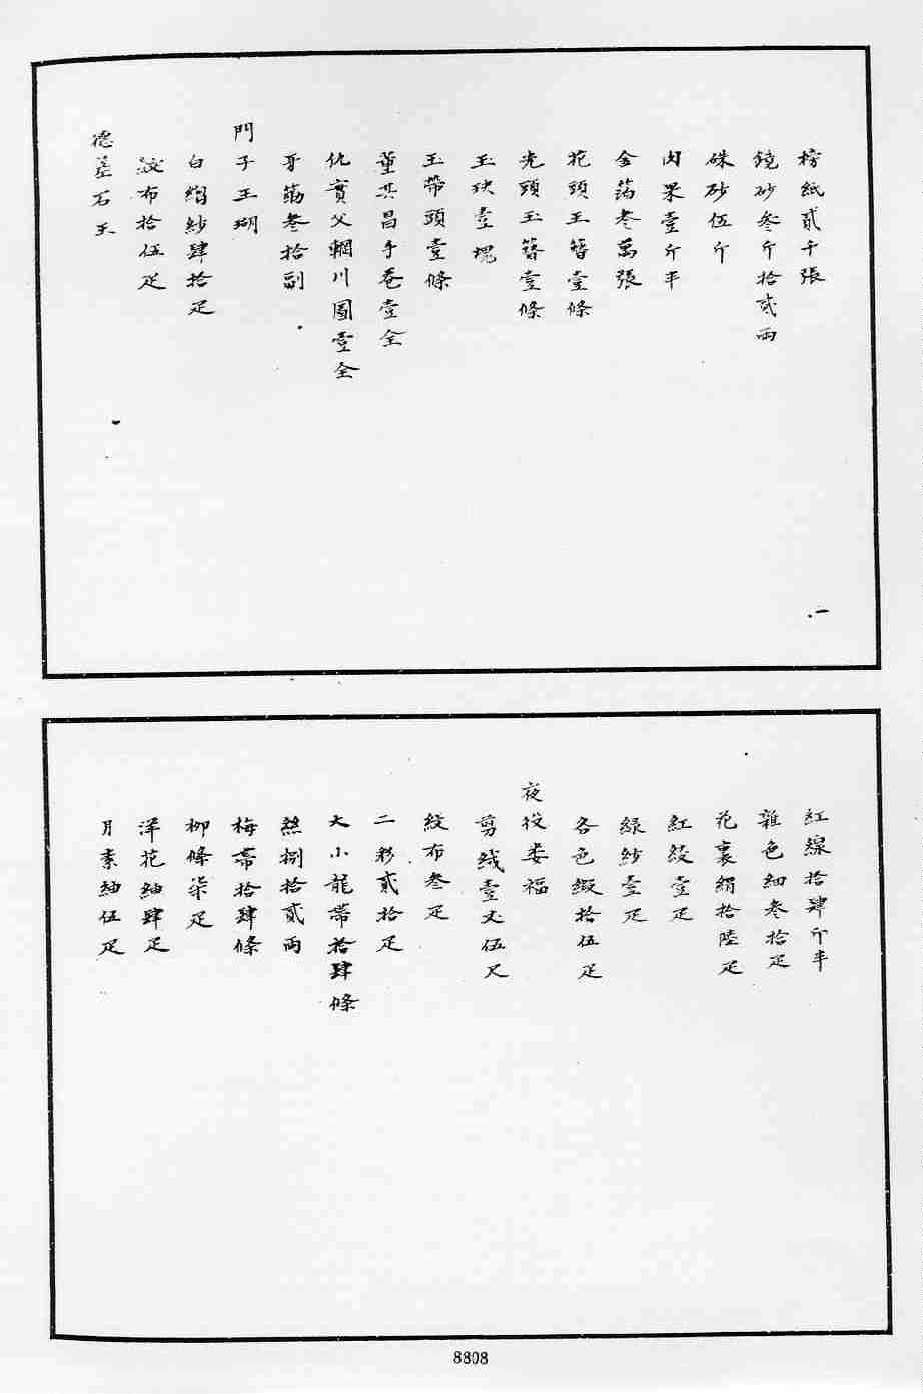 榜紙貳千張
鏡砂叁斤拾貳兩
硃砂伍斤
肉果壹斤半
金箔叁萬張
花頭玉簪壹條
光頭玉簪壹條
玉玦壹塊
玉帶頭壹條
董其昌手卷壹全
仇實父輞川圖壹全
牙筯叁拾副
門子王瑚
白縐紗肆拾疋
紋布拾伍疋
德盖石玉
一
紅線拾肆斤半
雜色紬叁拾疋
花裏絹拾陸疋
紅綾壹疋
綠紗壹疋
各色緞拾伍疋
夜役婁福
剪絨壹丈伍尺
紋布叁疋
二彩貳拾疋
大小龍帶拾肆條
絲捌拾貳兩
梅帶拾肆條
柳條柒疋
洋花紬肆疋
月素紬伍疋
8808